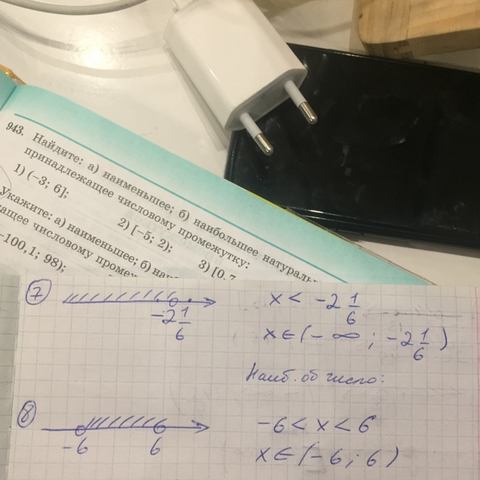 943. Найдите: а) наименьшее; б) наибольшее
принадлежащее числовому промежутку:
1) (−3; 6]; 2) [−5; 2); 3) [0,7
Укажите: а) наименьшее; б)
числовому
−100,1; 98);
7 −2 1/6 x < −2 1/6
x ∈ (−∞ ; −2 1/6)
Наиб. об число:
8 −6 6 −6 < x < 6
x ∈ (−6 ; 6)